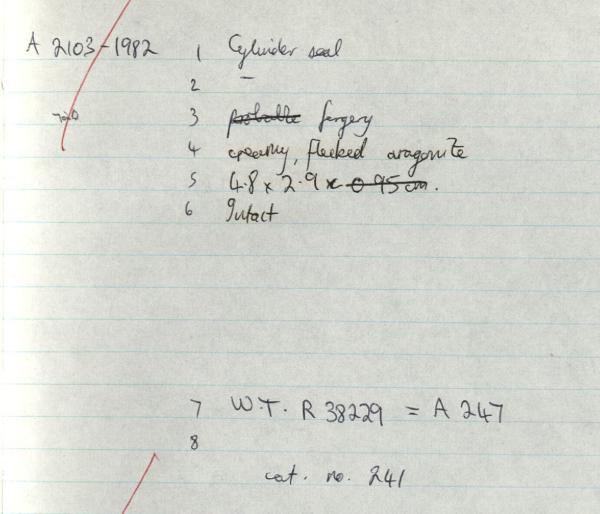 A 2103-1982 1 Cylinder seal
2 –
3 probable forgery
4 creamy, flecked aragonite
5 4.8 x 2.9 x 0.95 cm.
6 Intact
7 W.T. R 38229 = A 247
8
cat. no. 241